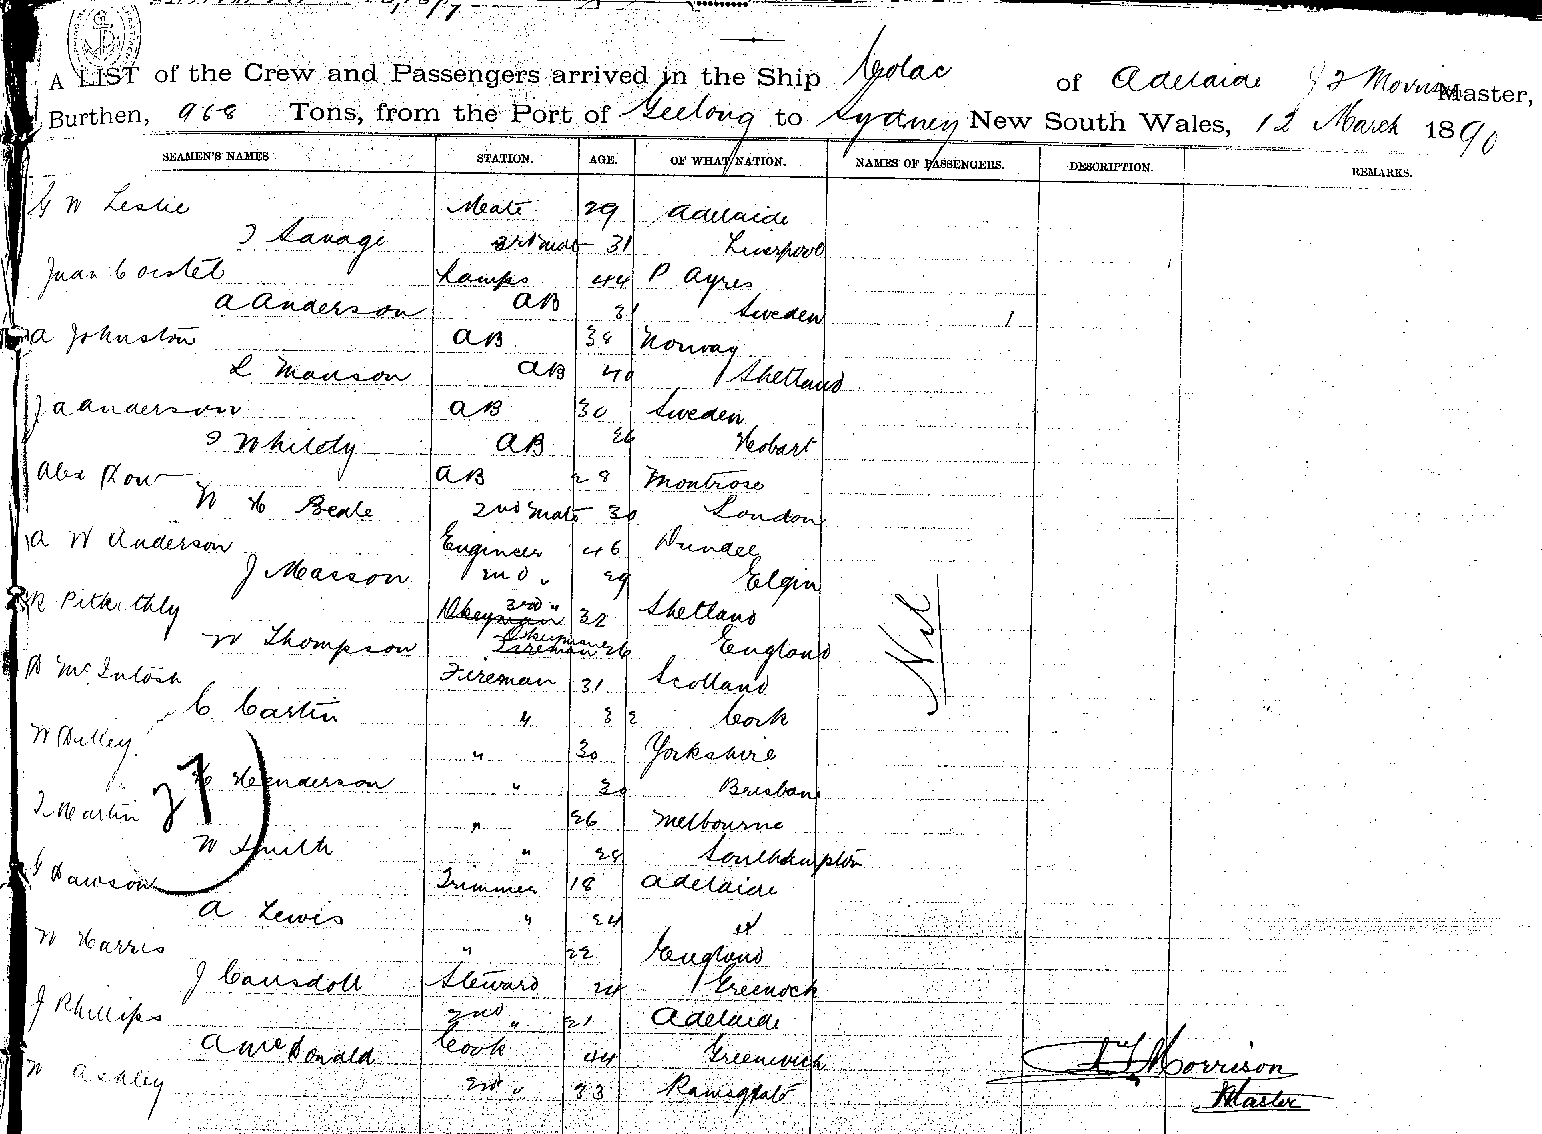 A LIST of the Crew and Passengers arrived in the Ship Colac of Adelaide J F Morrison Master,
Burthen, 968 Tons, from the Port of Geelong to Sydney New South Wales, 12 March 1890
SEAMEN'S NAMES STATION. AGE. OF WHAT NATION. NAMES OF PASSENGERS. DESCRIPTION. REMARKS.
G W Leslie Mate 29 Adelaide
Savage mate 31 Liverpool
Juan Lamps 44 Ayres
A Anderson AB 31 Sweden
A Johnston AB 38 Norway
L Manson AB 40 Shetland
J A Anderson AB 30 Sweden
Whildy AB 26 Hobart
Alex Dow AB 28 Montrose
W H Beale 2nd Mate 30 London
A W Anderson Engineer 46 Dundee
J Masson 2nd " 29 Elgin
R Pitkithly Dkeyman 3rd " 32 Shetland
W Thompson Fireman Dkeyman 26 England
D McIntosh Fireman 31 Scotland
C Cartin " 32 Cork
W Dilley " 30 Yorkshire
H Henderson " 30 Brisbane
T Martin " 26 Melbourne
W Smith " 28 Southampton
G Dawson Trimmer 18 Adelaide
A Lewis " 24
W Harris " 22 England
J Steward 24 Greenock
J Phillips 2nd " 21 Adelaide
A McDonald Cook 44 Greenwich
W Ashley 2nd " 33 Ramsgate
Nil
27
Morrison
Master